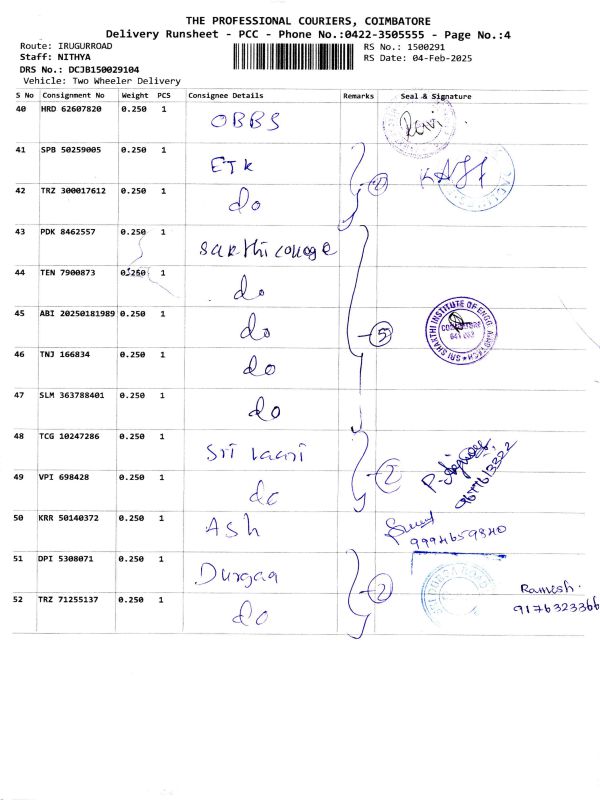 THE PROFESSIONAL COURIERS, COIMBATORE
Delivery Runsheet - PCC - Phone No.:0422-3505555 - Page No.:4
Route: IRUGURROAD RS No.: 1500291
Staff: NITHYA RS Date: 04-Feb-2025
DRS No.: DCJB150029104
Vehicle: Two Wheeler Delivery
S No Consignment No Weight PCS Consignee Details Remarks Seal & Signature
40 HRD 62607820 0.250 1 OBBS Ravi
41 SPB 50259005 0.250 1 ETK
42 TRZ 300017612 0.250 1 do
43 PDK 8462557 0.250 1 Sakthi college
44 TEN 7900873 0.250 1 do
45 ABI 20250181989 0.250 1 do 5
SRI SHAKTHI INSTITUTE OF ENGG. AND TECH
46 TNJ 166834 0.250 1 do
47 SLM 363788401 0.250 1 do
48 TCG 10247286 0.250 1 Sri
49 VPI 698428 0.250 1 do 2
50 KRR 50140372 0.250 1 Ash 9994659840
51 DPI 5308071 0.250 1 Durgaa 2
52 TRZ 71255137 0.250 1 do Ramesh.
9176323366